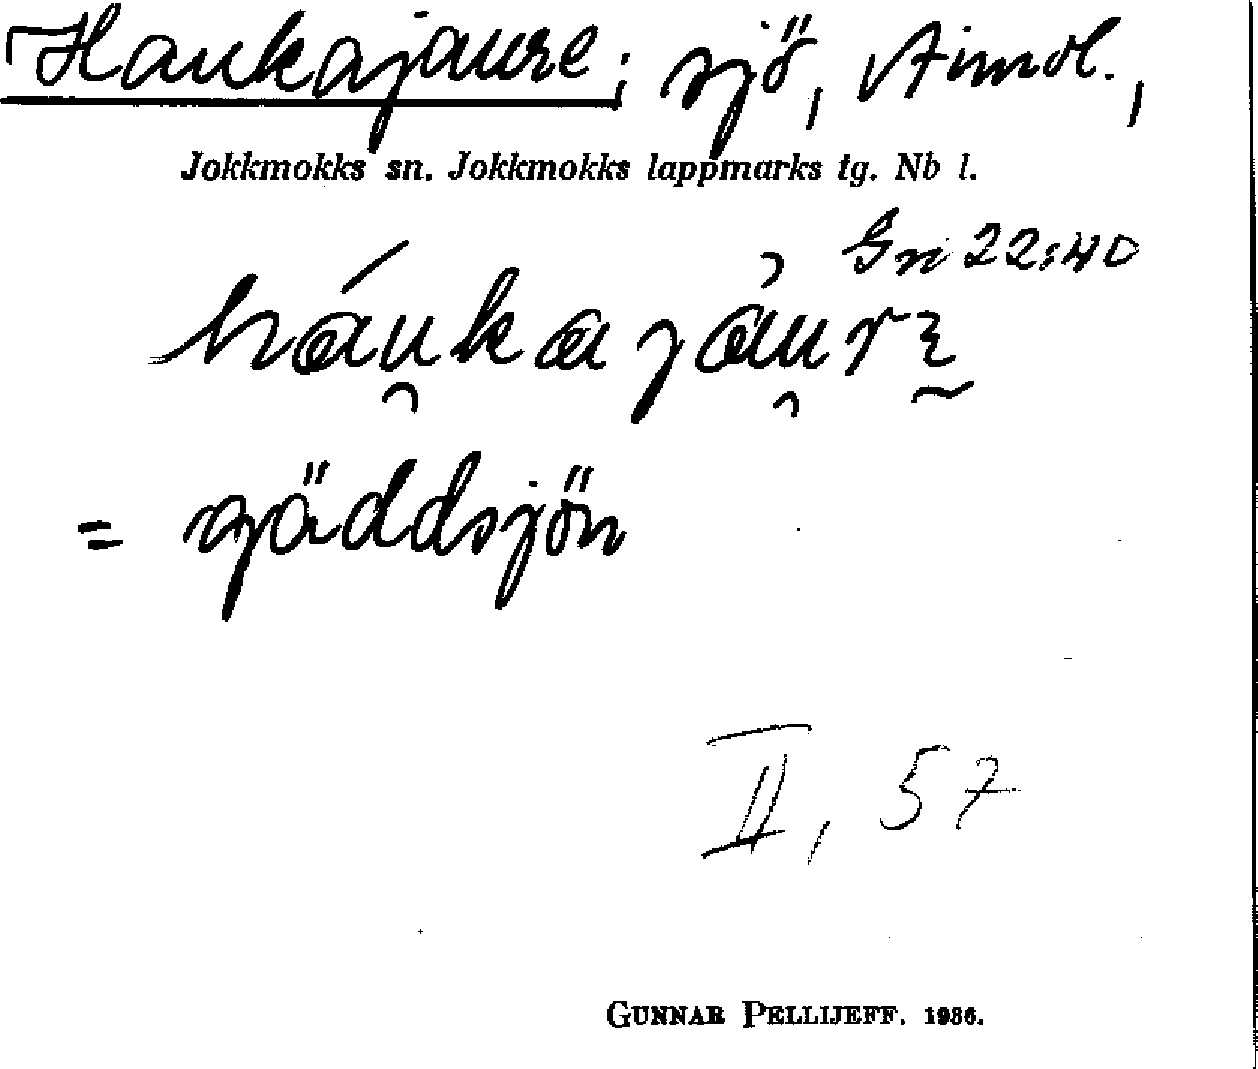 Haukajaure; sjö, Aimol.,
Jokkmokks sn. Jokkmokks lappmarks tg. Nb l.
Gn 22:40
= gäddsjön
II, 57
GUNNAR PELLIJEFF. 1936.